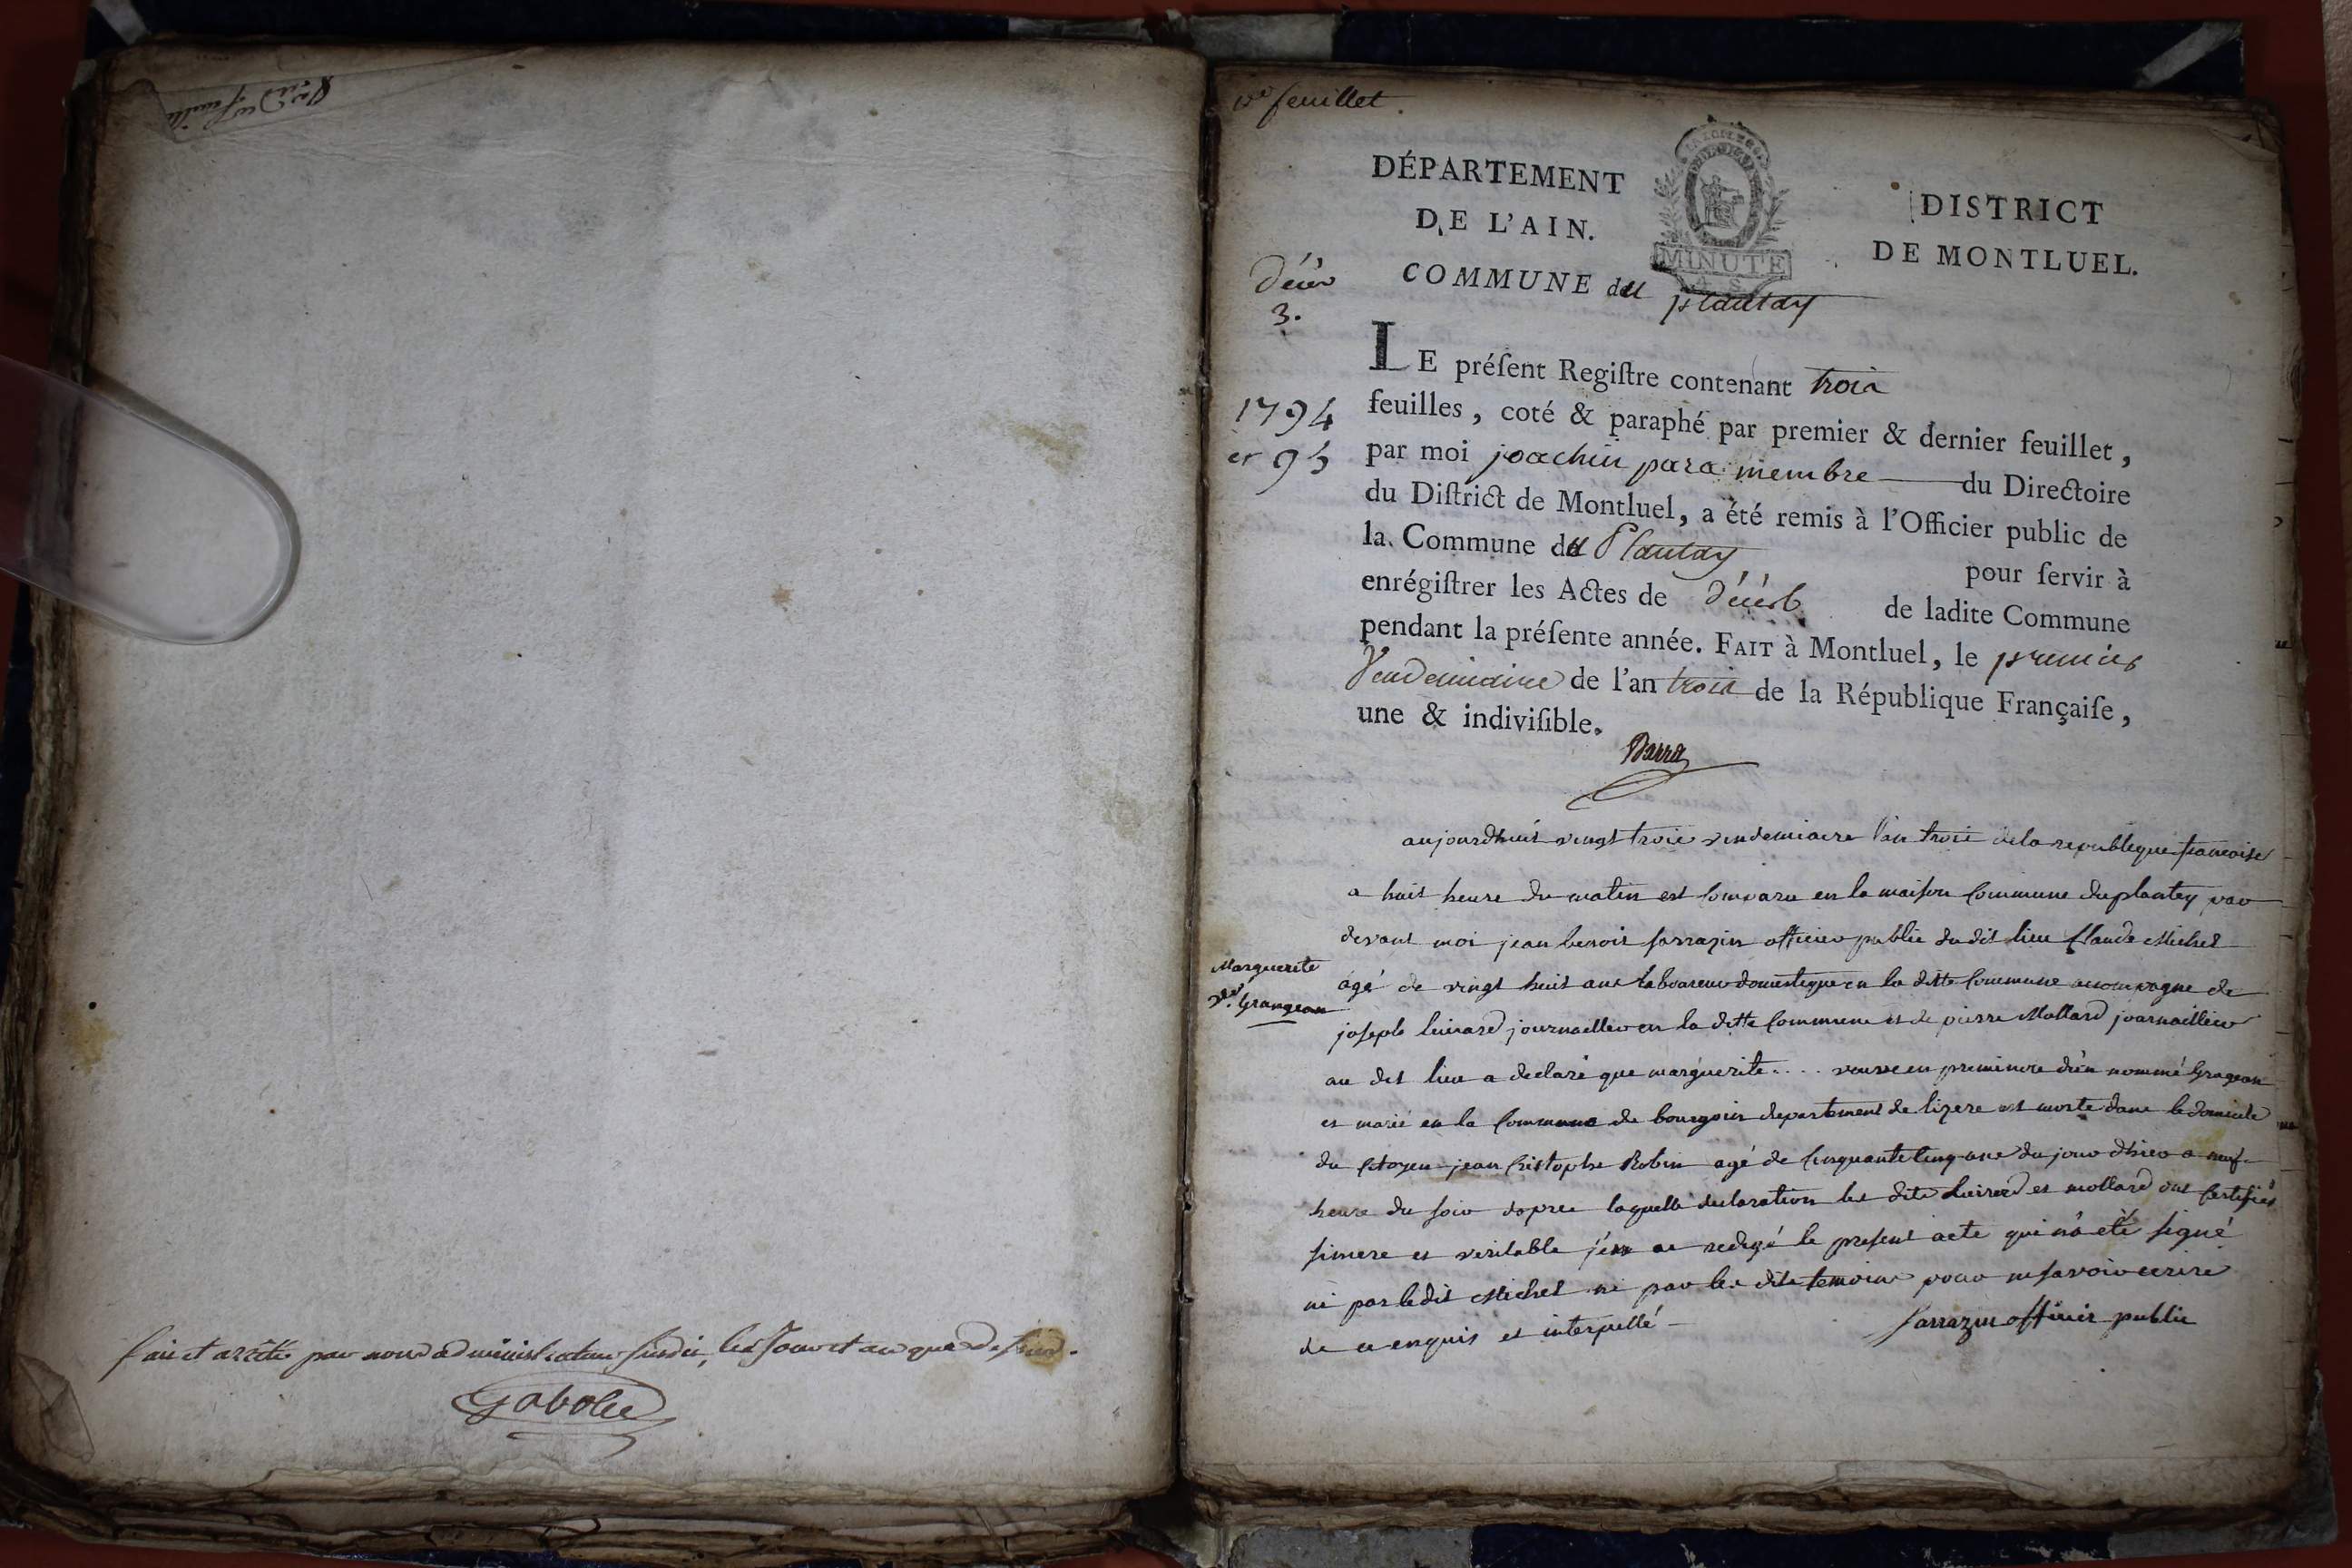 fait et arrêté par nous administrateur susdit, les jour et an que dessus.
Gabolu
1er feuillet.
DÉPARTEMENT
DE L'AIN.
MINUTE
DISTRICT
DE MONTLUEL.
COMMUNE du plantay
décès
3.
1794
et 95
LE préſent Regiſtre contenant trois
feuilles, coté & paraphé par premier & dernier feuillet,
par moi joachin para membre du Directoire
du Diſtrict de Montluel, a été remis à l'Officier public de
la Commune du Plantay pour ſervir à
enrégiſtrer les Actes de décès de ladite Commune
pendant la préſente année. FAIT à Montluel, le premier
Vendemiaire de l'an trois de la République Françaiſe,
une & indiviſible.
Parra
aujourdhuit vingt trois vendemiaire l'an trois de la republeque francoise
a huit heure du matin est comparu en la maison commune du plantey par
devant moi jean benoit sarrazin officier public du dit lieu Claude Michel
agé de vingt huit ans laboureur domestique en la ditte commune accompagne de
Marguerite
Vve Grangean
joseph luirard journallier en la ditte commune et de pierre Mollard journaillier
au dit lieu a declaré que marguerite.... veuve en premiere d'un nommé Gragean
et marié en la commune de bourgoin departement de lizere est morte dans le domicile
du citoyen jean cristophe Robin agé de cinquante cinq ans du jour d'hier a neuf
heure du soir dapres laquelle declaration les dits luirard et mollard ont certifiés
sinsere et veritable j'en ai redigé le present acte qui n'a eté signé
ni par le dit Michel ni par les dits temoins pour ne savoir ecrire
de ce enquis et interpellé
sarrazin officier public